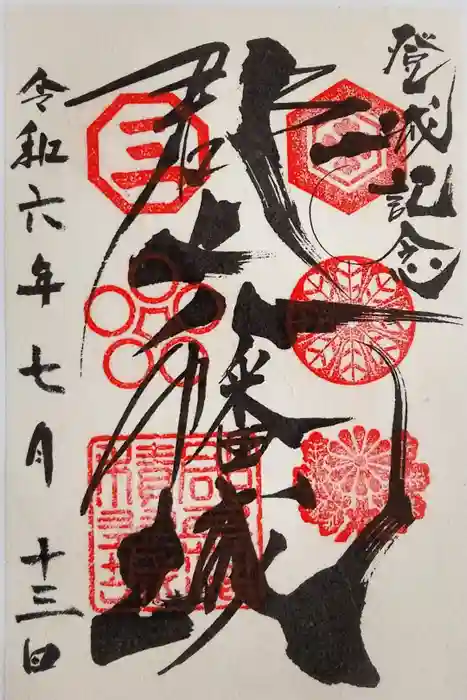 登城記念
郡上八幡城
令和六年七月十三日